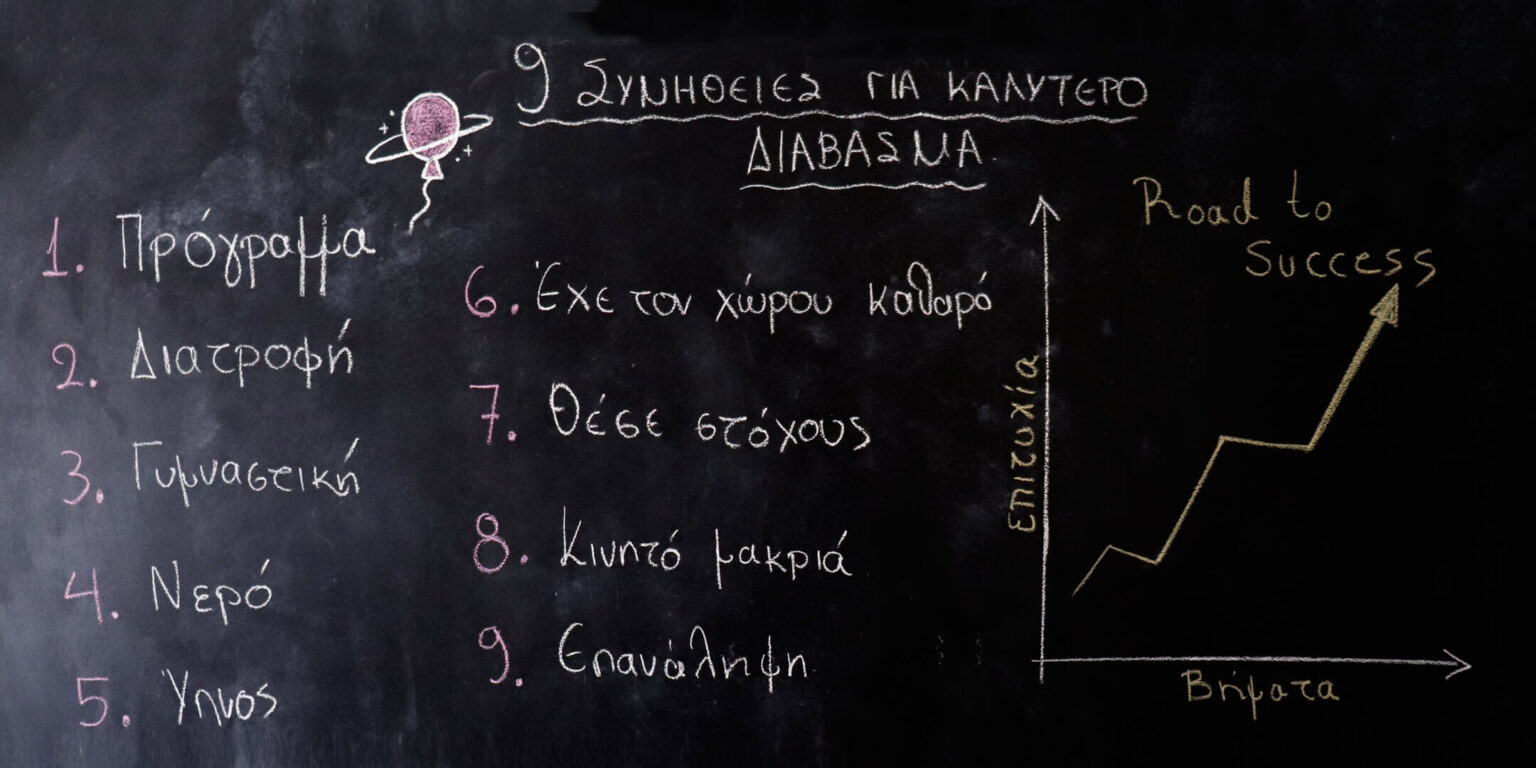 9 ΣΥΝΗΘΕΙΕΣ ΓΙΑ ΚΑΛΥΤΕΡΟ
ΔΙΑΒΑΣΜΑ
1. Πρόγραμμα
2. Διατροφή
3. Γυμναστική
4. Νερό
5. Ύπνος
6. Έχε τον χώρου καθαρό
7. Θέσε στόχους
8. Κινητό μακριά
9. Επανάληψη
Road to
Success
Επιτυχία
Βήματα